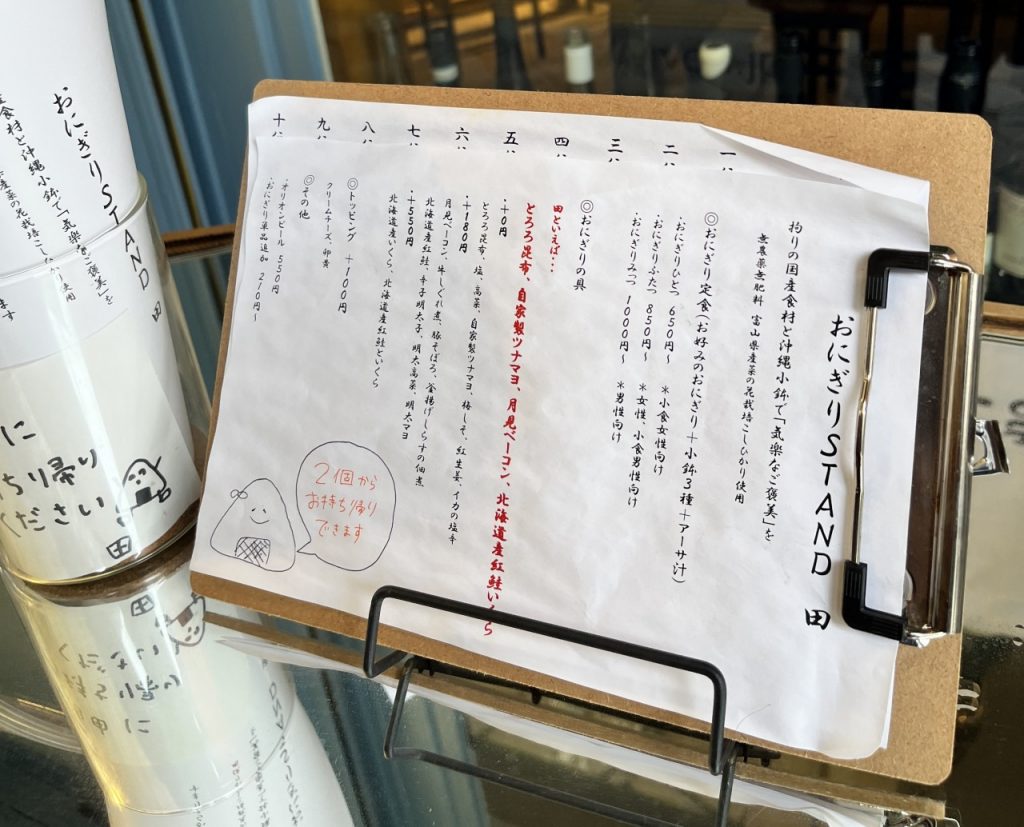 おにぎりSTAND 田
拘りの国産食材と沖縄小鉢で「気楽なご褒美」を
無農薬無肥料 富山県産菜の花栽培こしひかり使用
◎おにぎり定食(お好みのおにぎり＋小鉢3種＋アーサ汁)
・おにぎりひとつ 650円～ ＊小食女性向け
・おにぎりふたつ 850円～ ＊女性、小食男性向け
・おにぎりみつつ 1000円～ ＊男性向け
◎おにぎりの具
田といえば・・・
とろろ昆布、自家製ツナマヨ、月見ベーコン、北海道産紅鮭いくら
・＋0円
とろろ昆布、塩、高菜、自家製ツナマヨ、梅しそ、紅生姜、イカの塩辛
・＋180円
月見ベーコン、牛しぐれ煮、豚そぼろ、釜揚げしらすの佃煮
北海道産紅鮭、辛子明太子、明太高菜、明太マヨ
・＋550円
北海道産いくら、北海道産紅鮭といくら
◎トッピング ＋100円
クリームチーズ、卵黄
◎その他
・オリオンビール 550円
・おにぎり単品追加 210円～
2個から
お持ち帰り
できます
一
二
三
四
五
六
七
八
九
十
おにぎりSTAND 田
ください
田